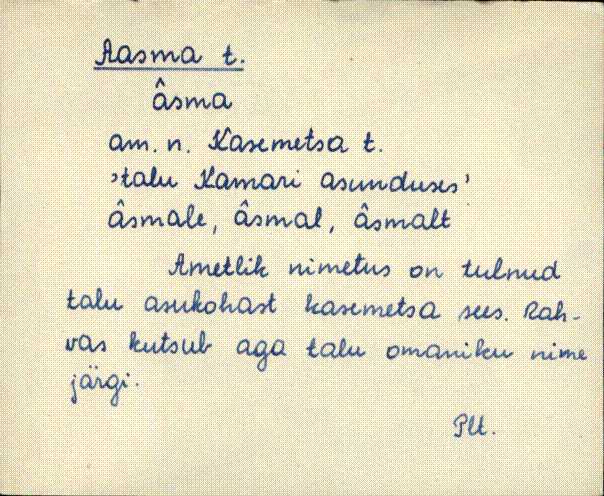 Aasma t.
âsma
am. n. Kasemetsa t.
'talu Kamari asunduses'
âsmale, âsmal, âsmalt
Ametlik nimetus on tulnud
talu asukohast kasemetsa sees. Rah-
vas kutsub aga talu omaniku nime
järgi.
Plt.